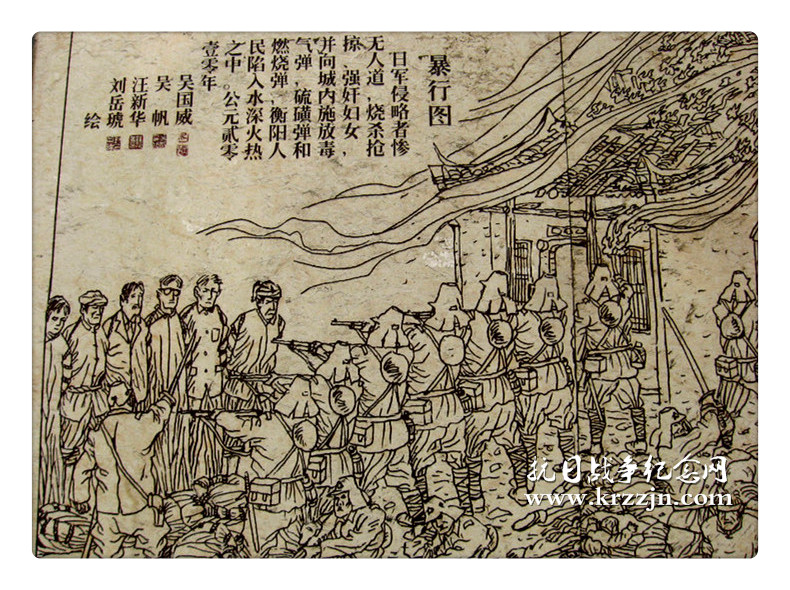 暴行图
日军侵略者惨
无人道，烧杀抢
掠、强奸妇女，
并向城内施放毒
气弹，硫磺弹和
燃烧弹，衡阳人
民陷入水深火热
之中。公元贰零
壹零年
吴国威
吴帆
汪新华
刘岳琥
绘
抗日战争纪念网
www.krzzjn.com